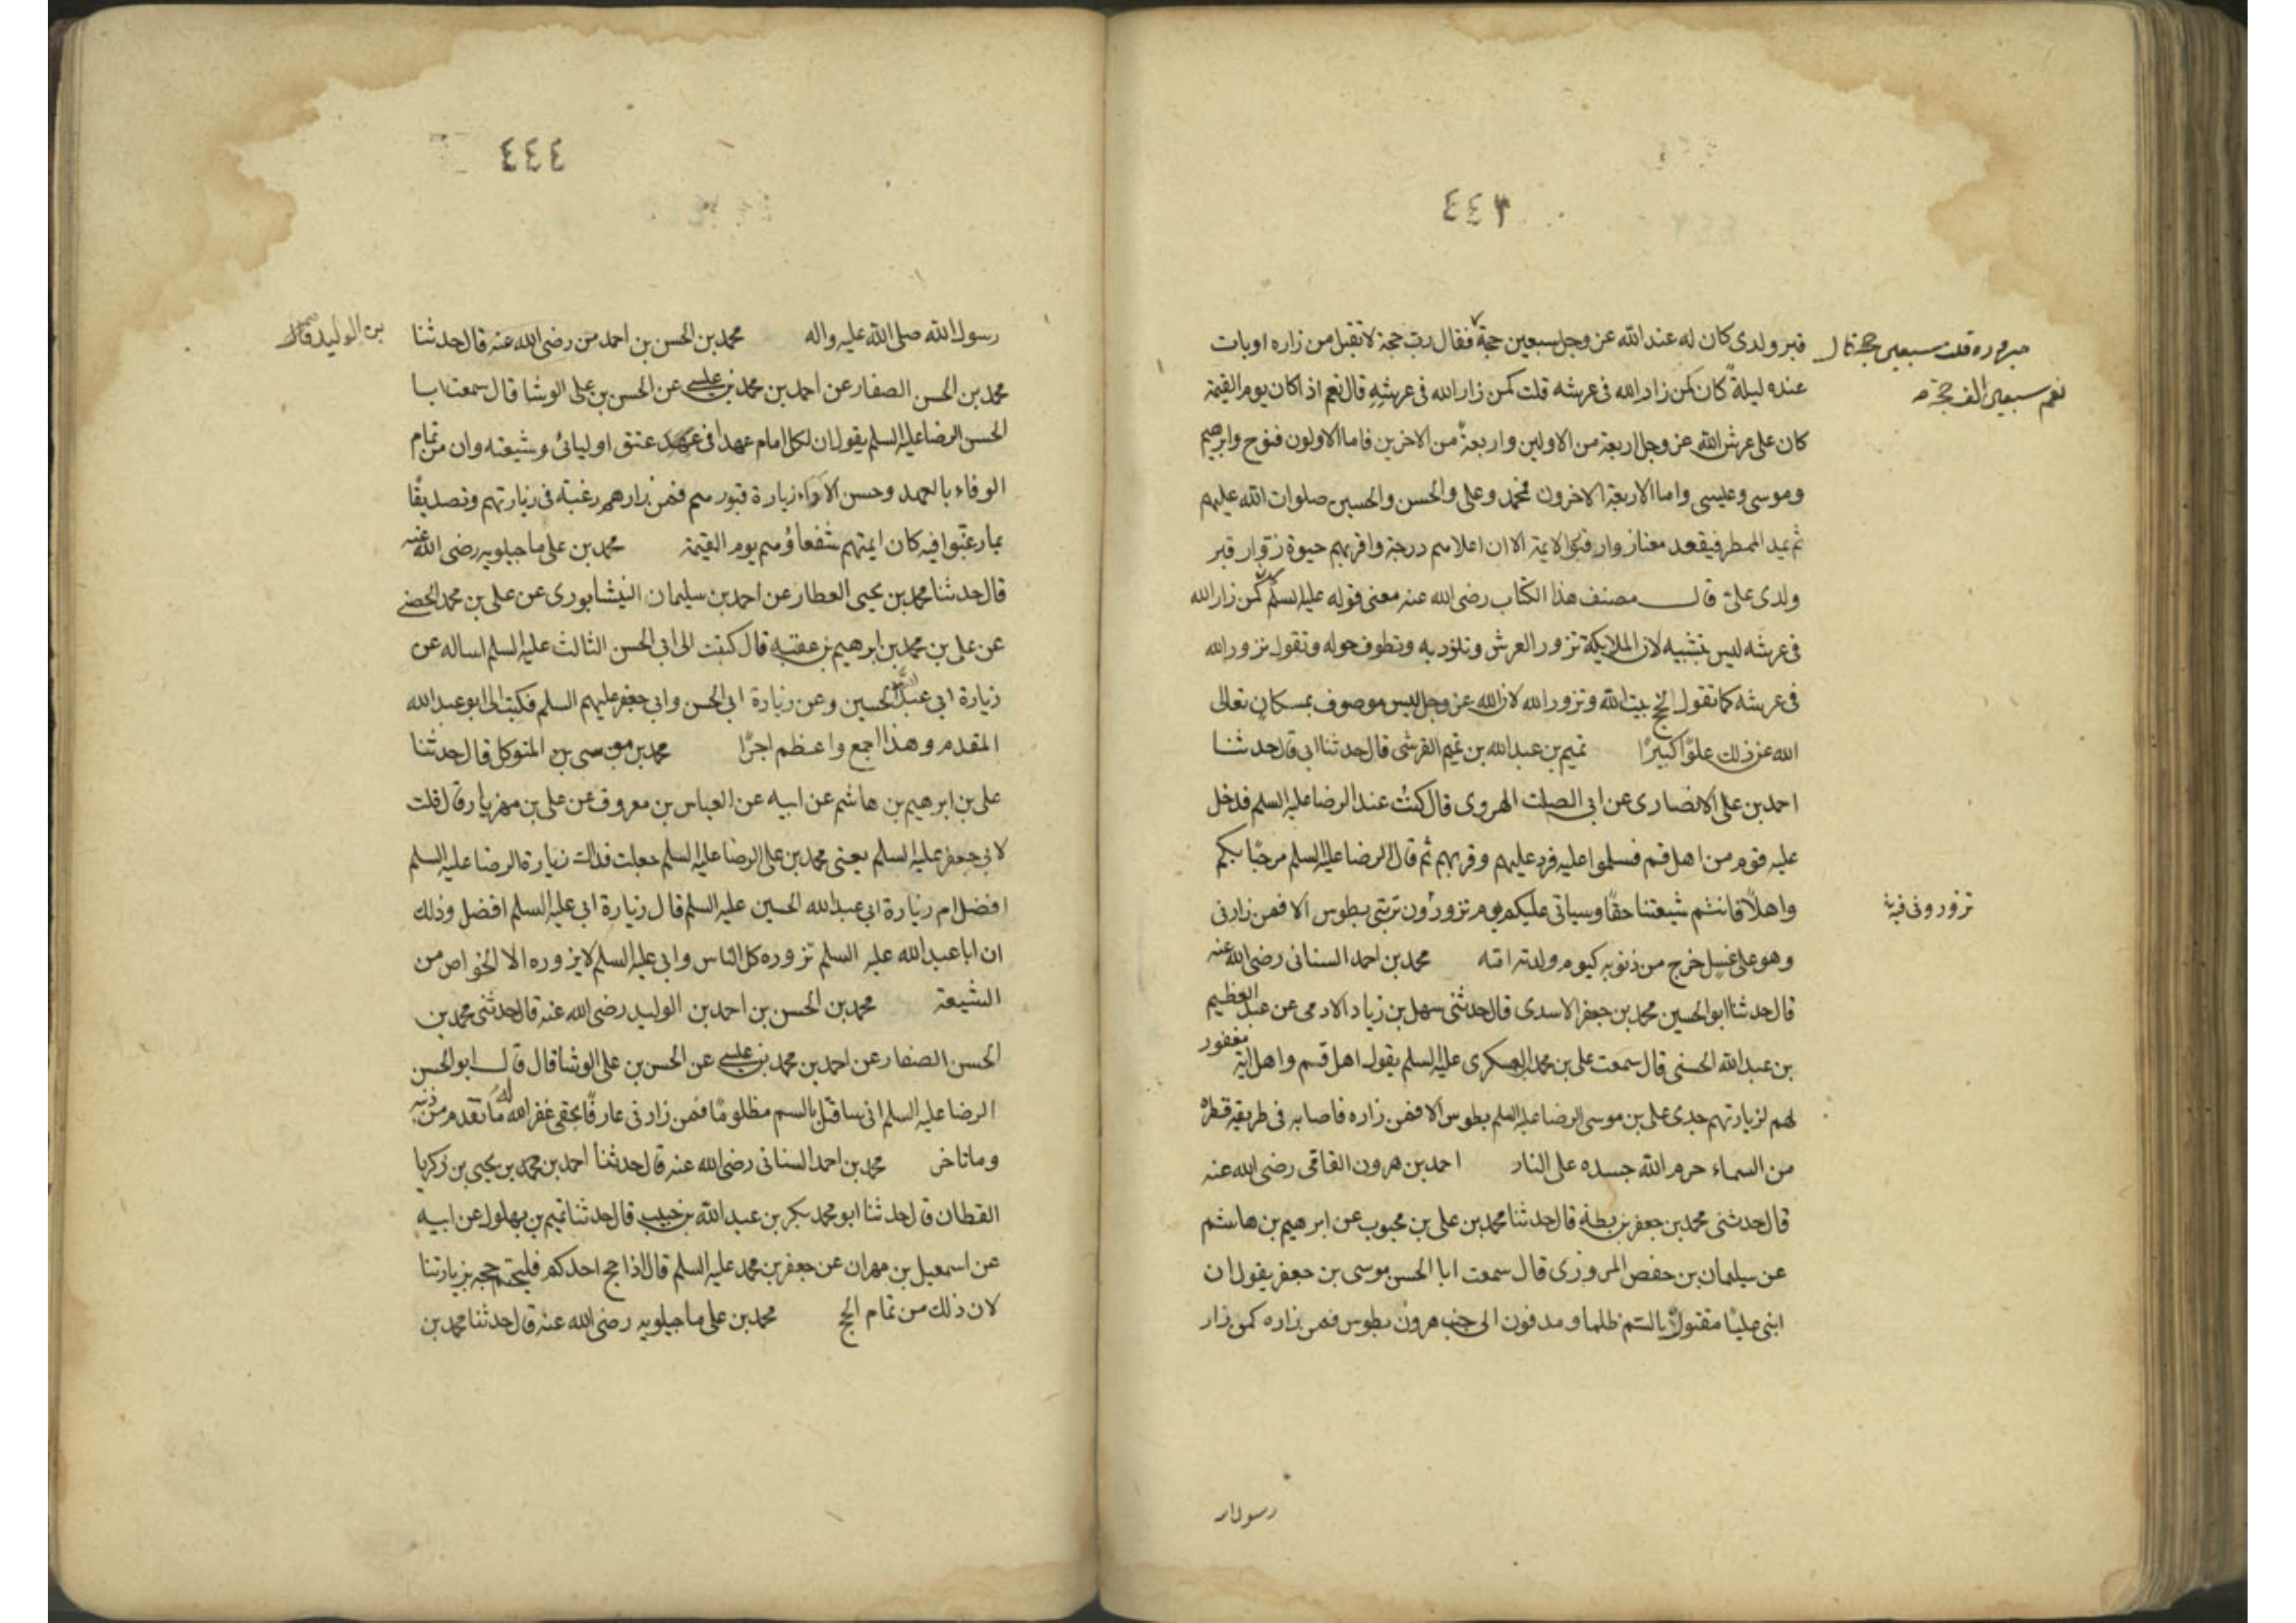 ٤٤٣
قبر ولدى كان له عند الله عز وجل سبعين حجة فقال رب حجة لا تقبل من زاره او بات
مبروره قلت سبعين حجة قال
نعم سبعين الف حجة
عنده ليلة كان كمن زار الله فى عرشه قلت كمن زار الله فى عرشه قال نعم اذا كان يوم القيمة
كان على عرش الله عز وجل اربعة من الاولين واربعة من الاخرين فاما الاولون فنوح وابرهيم
وموسى وعيسى واما الاربعة الاخرون فمحمد وعلى والحسن والحسين صلوات الله عليهم
ثم يمد المطمر فيقعد معنا زوار قبور الايمة الا ان اعلاهم درجة واقربهم حبوة زوار قبر
ولدى على قال مصنف هذا الكتاب رضى الله عنه معنى قوله عليه السلم كمن زار الله
فى عرشه ليس بتشبيه لان الملايكة تزور العرش وتلوذ به وتطوف حوله وتقول نزور الله
فى عرشه كما تقول نحج بيت الله ونزور الله لان الله عز وجل ليس موصوف بمكان تعالى
الله عن ذلك علوا كبيرا تميم بن عبد الله بن تميم القرشى قال حدثنا ابى قال حدثنا
احمد بن على الانصارى عن ابى الصلت الهروى قال كنت عند الرضا عليه السلم فدخل
عليه قوم من اهل قم فسلموا عليه فرد عليهم وقربهم ثم قال الرضا عليه السلم مرحبا بكم
واهلا فانتم شيعتنا حقا وسياتى عليكم يوم تزورون تربتى بطوس الا فمن زارنى
تزورونى فيه
وهو على غسل خرج من ذنوبه كيوم ولدته امه محمد بن احمد السنانى رضى الله عنه
قال حدثنا ابو الحسين محمد بن جعفر الاسدى قال حدثنى سهل بن زياد الادمى عن عبد العظيم
بن عبد الله الحسنى قال سمعت على بن محمد العسكرى عليه السلم يقول اهل قم واهل ابة مغفور
لهم لزيارتهم جدى على بن موسى الرضا عليه السلم بطوس الا فمن زاره فاصابه فى طريقه قطرة
من السماء حرم الله جسده على النار احمد بن هرون الفاقى رضى الله عنه
قال حدثنى محمد بن جعفر بن بطة قال حدثنا محمد بن على بن محبوب عن ابرهيم بن هاشم
عن سيلمان بن حفص المروزى قال سمعت ابا الحسن موسى بن جعفر يقول ان
ابنى عليا مقتول بالسم ظلما ومدفون الى جنب هرون بطوس فمن زاره كمن زار
رسول الله
٤٤٤
رسول الله صلى الله عليه واله محمد بن الحسن بن احمد من رضى الله عنه قال حدثنا
بن الوليد
محمد بن الحسن الصفار عن احمد بن محمد بن عيسى عن الحسن بن على الوشا قال سمعت ابا
الحسن الرضا عليه السلم يقول ان لكل امام عهدا فى عهد عنق اوليائى وشيعته وان من تمام
الوفاء بالعهد وحسن الاداء زيارة قبورهم فمن زارهم رغبته فى زيارتهم وتصديقا
بما رغبوا فيه كان ايمتهم شفعاؤهم يوم القيمة محمد بن على ماجيلويه رضى الله عنه
قال حدثنا محمد بن يحيى العطار عن احمد بن سليمان النيشابورى عن على بن محمد الحضينى
عن على بن محمد بن ابرهيم بن عقبه قال كتبت الى ابى الحسن الثالث عليه السلم اساله عن
زيارة ابى عبد الله الحسين وعن زيارة ابى الحسن وابى جعفر عليهم السلم فكتب الى ابو عبد الله
المقدم وهذا اجمع واعظم اجرا محمد بن موسى بن المتوكل قال حدثنا
على بن ابرهيم بن هاشم عن ابيه عن العباس بن معروف عن على بن مهزيار قال قلت
لابى جعفر عليه السلم يعنى محمد بن على الرضا عليه السلم جعلت فداك زيارة الرضا عليه السلم
افضل ام زيارة ابى عبد الله الحسين عليه السلم قال زيارة ابى عليه السلم افضل وذلك
ان ابا عبد الله عليه السلم تزوره كل الناس وابى عليه السلم لا يزوره الا الخواص من
الشيعة محمد بن الحسن بن احمد بن الوليد رضى الله عنه قال حدثنى محمد بن
الحسن الصفار عن احمد بن محمد بن عيسى عن الحسن بن على الوشا قال قال ابو الحسن
الرضا عليه السلم انى ساقتل بالسم مظلوما فمن زارنى عارفا بحقى غفر الله له ما تقدم من ذنبه
وما تاخر محمد بن احمد السنانى رضى الله عنه قال حدثنا احمد بن محمد بن يحيى بن زكريا
القطان قال حدثنا ابو محمد بكر بن عبد الله بن حبيب قال حدثنا تميم بن بهلول عن ابيه
عن اسمعيل بن مهران عن جعفر بن محمد عليه السلم قال اذا حج احدكم فليختم حجه بزيارتنا
لان ذلك من تمام الحج محمد بن على ماجيلويه رضى الله عنه قال حدثنا محمد بن